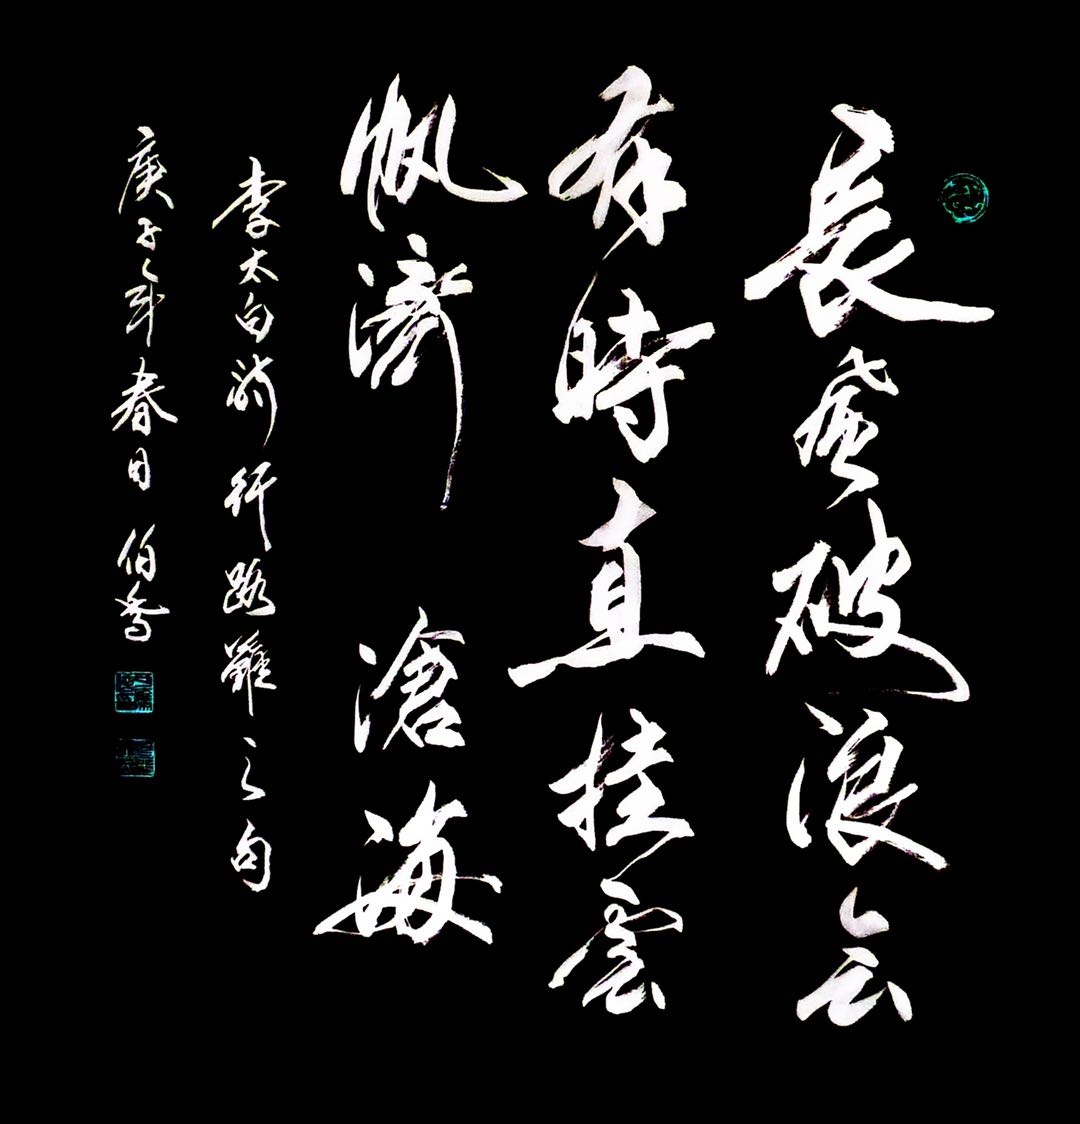 長風破浪会
有時直挂雲
帆濟滄海
李太白詩行路難之句
庚子年春日伯喬